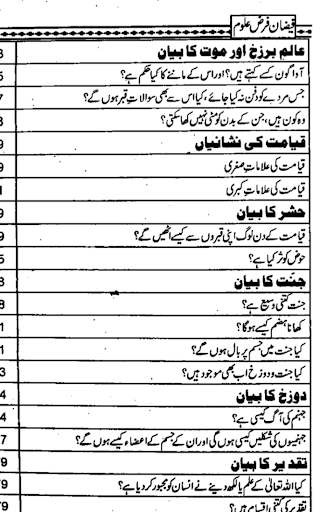 فیضان فرض علوم
عالم برزخ اور موت کا بیان
3
آواگون کسے کہتے ہیں؟ اور اس کے ماننے کا کیا حکم ہے؟
5
جس مردے کو دفن نہ کیا جائے، کیا اس سے بھی سوالات قبر ہوں گے؟
7
وہ کون ہیں، جن کے بدن کو مٹی نہیں کھا سکتی؟
3
قیامت کی نشانیاں
9
قیامت کی علامات صغری
9
قیامت کی علامات کبری
1
حشر کا بیان
9
قیامت کے دن لوگ اپنی قبروں سے کیسے اٹھیں گے؟
9
حوض کوثر کیا ہے؟
5
جنت کا بیان
8
جنت کتنی وسیع ہے؟
8
کھانا ہضم کیسے ہوگا؟
1
کیا جنت میں جسم پر بال ہوں گے؟
1
کیا جنت و دوزخ اب بھی موجود ہیں؟
3
دوزخ کا بیان
4
جہنم کی آگ کیسی ہے؟
4
جہنمیوں کی شکلیں کیسی ہوں گی اور ان کے جسم کے اعضاء کیسے ہوں گے؟
7
تقدیر کا بیان
79
کیا اللہ تعالی کے علم یا لکھ دینے نے انسان کو مجبور کر دیا ہے؟
79
تقدیر کی کتنی اقسام ہیں؟